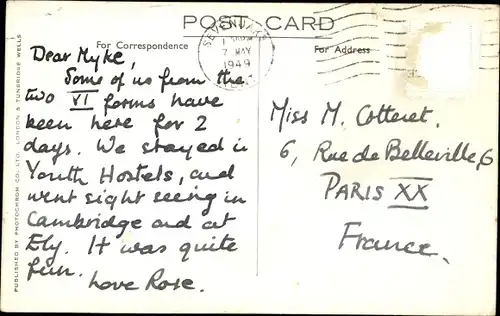 POST CARD
For Correspondence
For Address
SEVENOAKS
7 MAY
1949
KENT
Dear Myke,
Some of us from the
two VI forms have
been here for 2
days. We stayed in
Youth Hostels, and
went sight seeing in
Cambridge and at
Ely. It was quite
fun.
Love Rose.
Miss M. Cotteret.
6, Rue de Belleville, 6
PARIS XX
France.
PUBLISHED BY PHOTOCHROM CO. LTD. LONDON & TUNBRIDGE WELLS